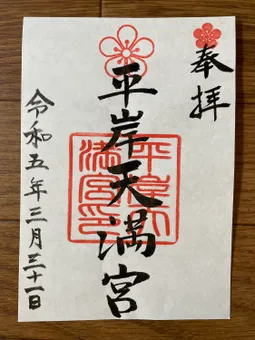 奉拝
平岸天満宮
令和五年三月三十一日
平岸天
満宮印